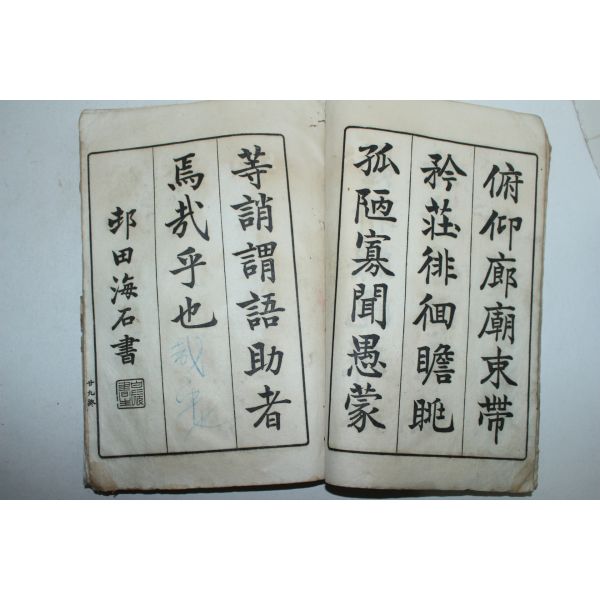 俯仰廊廟束帶
矜莊徘徊瞻眺
孤陋寡聞愚蒙
等誚謂語助者
焉哉乎也
邨田海石書
廿九終